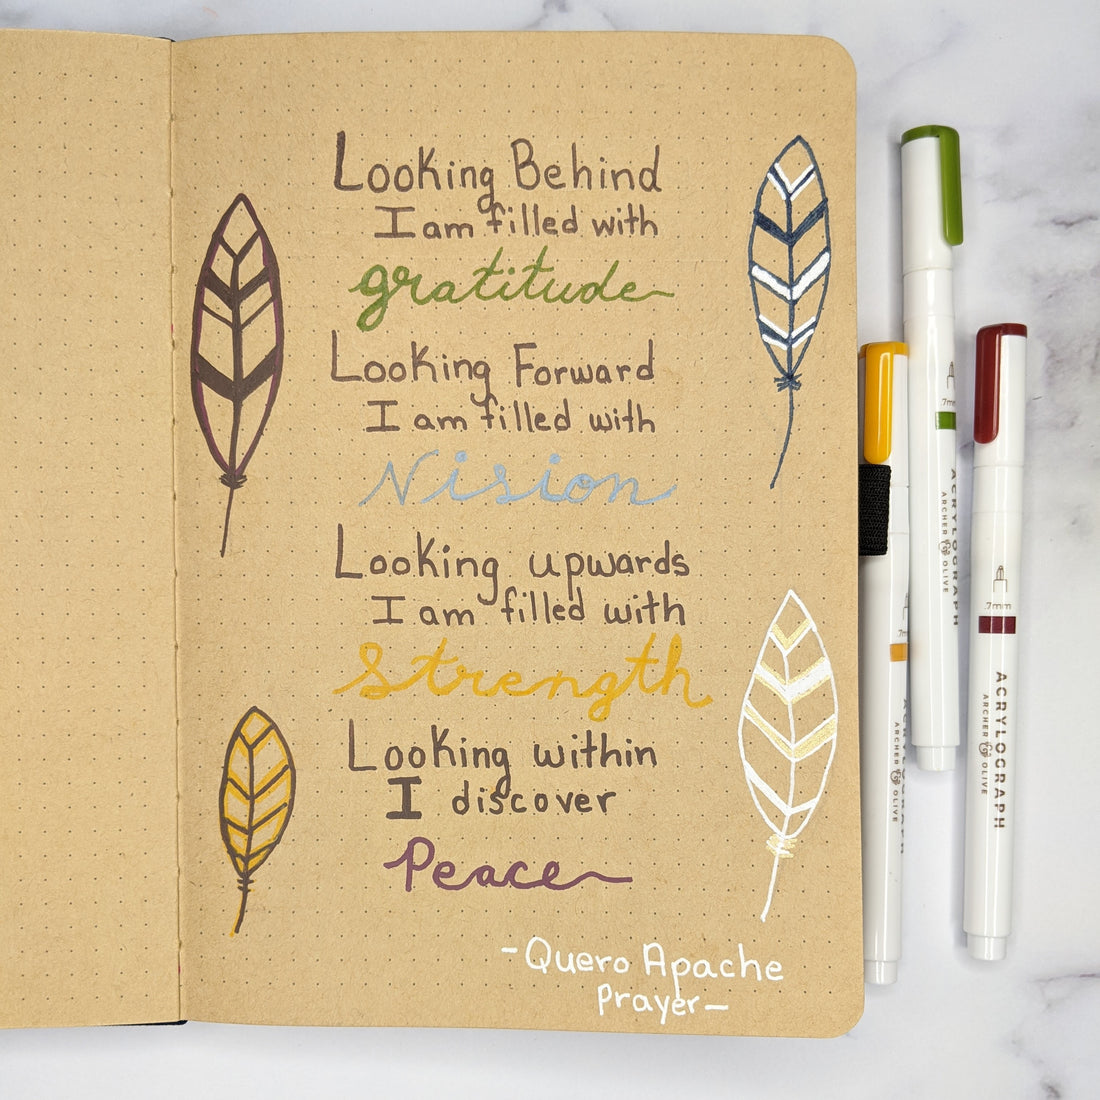 Looking Behind
I am filled with
gratitude
Looking Forward
I am filled with
Vision
Looking upwards
I am filled with
Strength
Looking within
I discover
Peace
-Quero Apache
Prayer-
.7mm
ACRYLOGRAPH
ARCHER & OLIVE
.7mm
ACRYLOGRAPH
ARCHER & OLIVE
.7mm
ACRYLOGRAPH
ARCHER & OLIVE